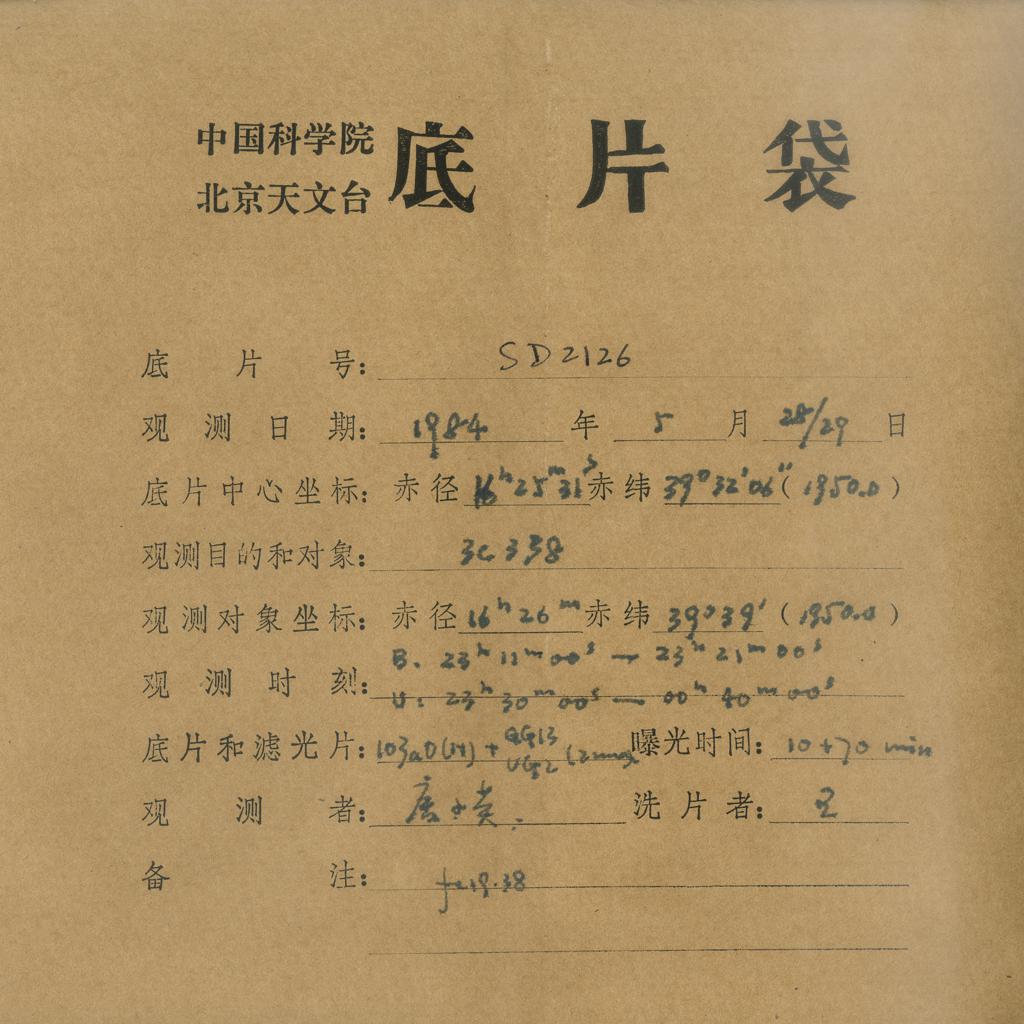 中国科学院
北京天文台
底片袋
底片号: SD2126
观测日期: 1984 年 5 月 28/29 日
底片中心坐标: 赤径 16h25m31s 赤纬 39°32′06″ (1950.0)
观测目的和对象: 3C338
观测对象坐标: 赤径 16h26m 赤纬 39°39′ (1950.0)
B. 23h11m00s — 23h21m00s
观测时刻:
U: 23h30m00s — 00h40m00s
底片和滤光片: 103aO(H) + GG13 UG2 (2mm) 曝光时间: 10+70 min
观测者: 唐 黄. 洗片者: 王
备注: f=19.38